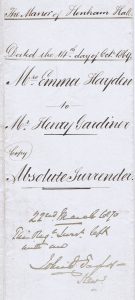 The Manor of Henham Hall
Dated the 14th day of Octr 1869.
Mrs Emma Hayden
to
Mr Henry Gardiner
Copy
Absolute Surrender
22nd March 1870
with me